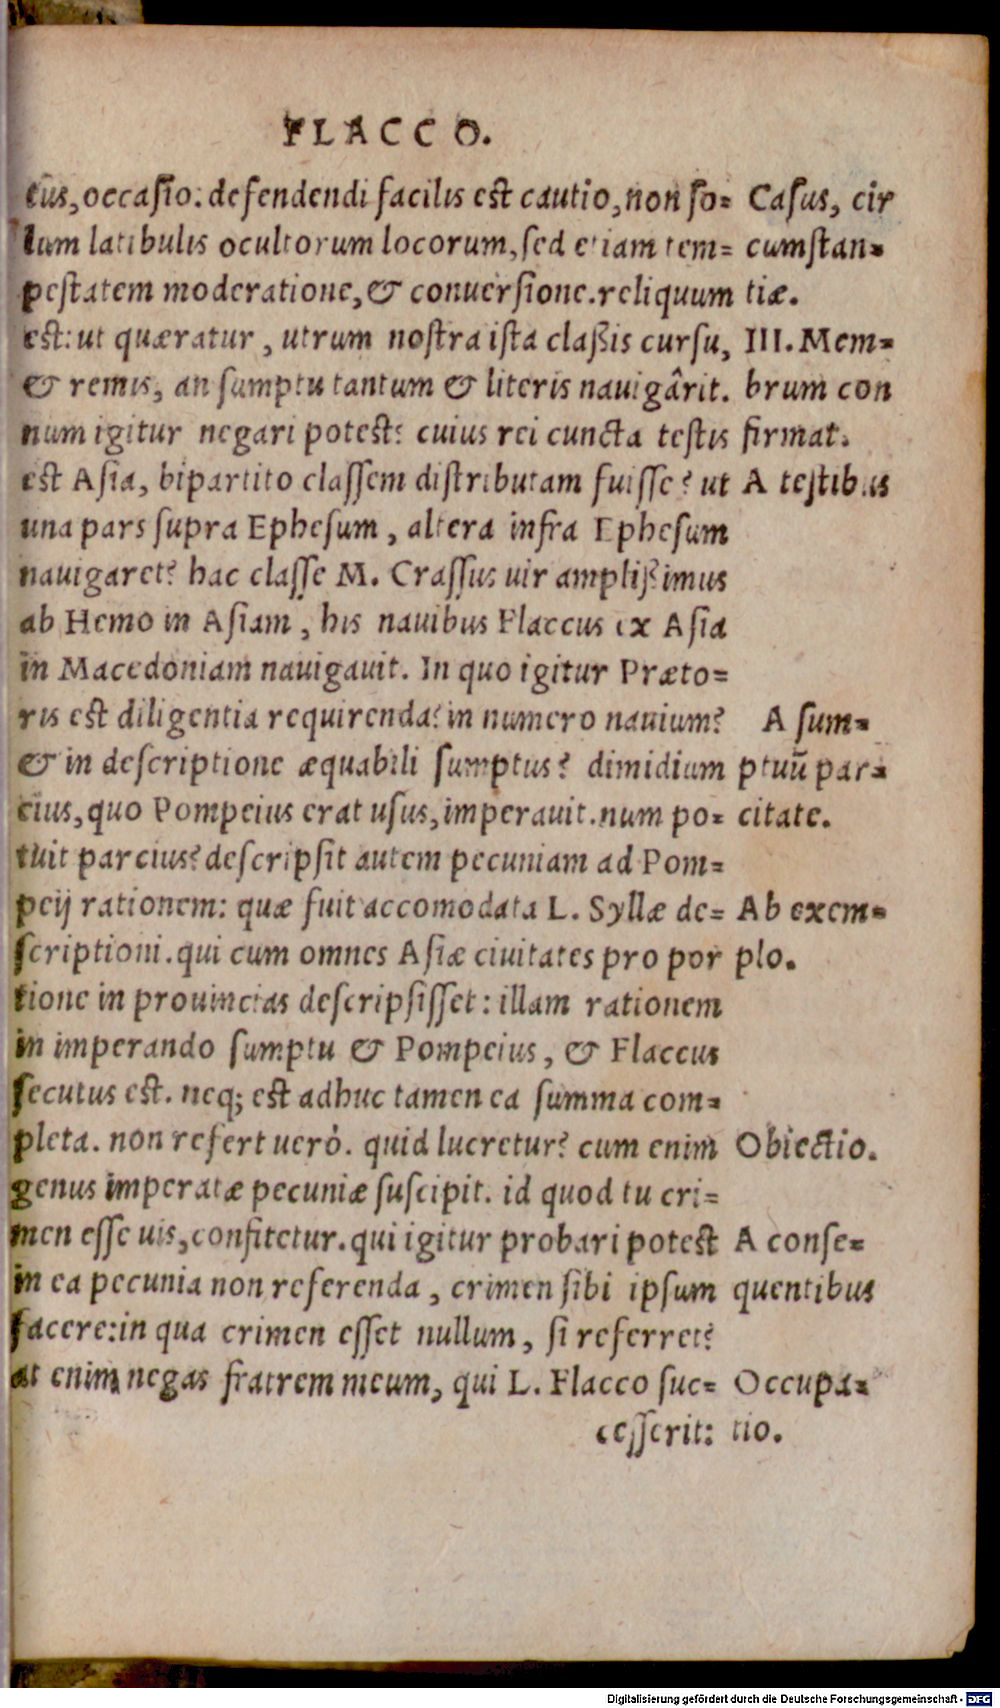 FLACCO.
tus, occasio: defendendi facilis est cautio, non so=
lum latibulis ocultorum locorum, sed etiam tem=
pestatem moderatione, & conuersione. reliquum
est: ut quæratur, utrum nostra ista claßis cursu,
& remis, an sumptu tantum & literis nauigârit.
num igitur negari potest? cuius rei cuncta testis
est Asia, bipartito classem distributam fuisse? ut
una pars supra Ephesum, altera infra Ephesum
nauigaret? hac classe M. Crassus uir amplißimus
ab Hemo in Asiam, his nauibus Flaccus ex Asia
in Macedoniam nauigauit. In quo igitur Præto=
ris est diligentia requirenda? in numero nauium?
& in descriptione æquabili sumptus? dimidium
eius, quo Pompeius erat usus, imperauit. num po=
tuit parcius? descripsit autem pecuniam ad Pom=
peij rationem: quæ fuit accomodata L. Syllæ de=
scriptioni. qui cum omnes Asiæ ciuitates pro por
tione in prouincias descripsisset: illam rationem
in imperando sumptu & Pompeius, & Flaccus
secutus est. neq; est adhuc tamen ea summa com=
pleta. non refert uerò. quid lucretur? cum enim
genus imperatæ pecuniæ suscipit. id quod tu cri=
men esse uis, confitetur. qui igitur probari potest
in ea pecunia non referenda, crimen sibi ipsum
facere: in qua crimen esset nullum, si referret?
at enim negas fratrem meum, qui L. Flacco suc=
cesserit:
Casus, cir
cumstan=
tiæ.
III. Mem=
brum con
firmat.
A testibus
A sum=
ptuũ par=
citate.
Ab exem=
plo.
Obiectio.
A conse=
quentibus
Occupa=
tio.
Digitalisierung gefördert durch die Deutsche Forschungsgemeinschaft - DFG